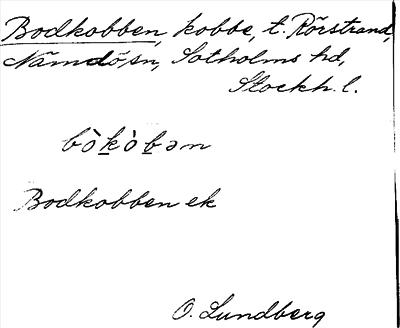 Bodkobben, kobbe, t. Rörstrand,
Nämdö sn, Sotholms hd,
Stockh. l.
bò̀kòbən
Bodkobben ek
O. Lundberg